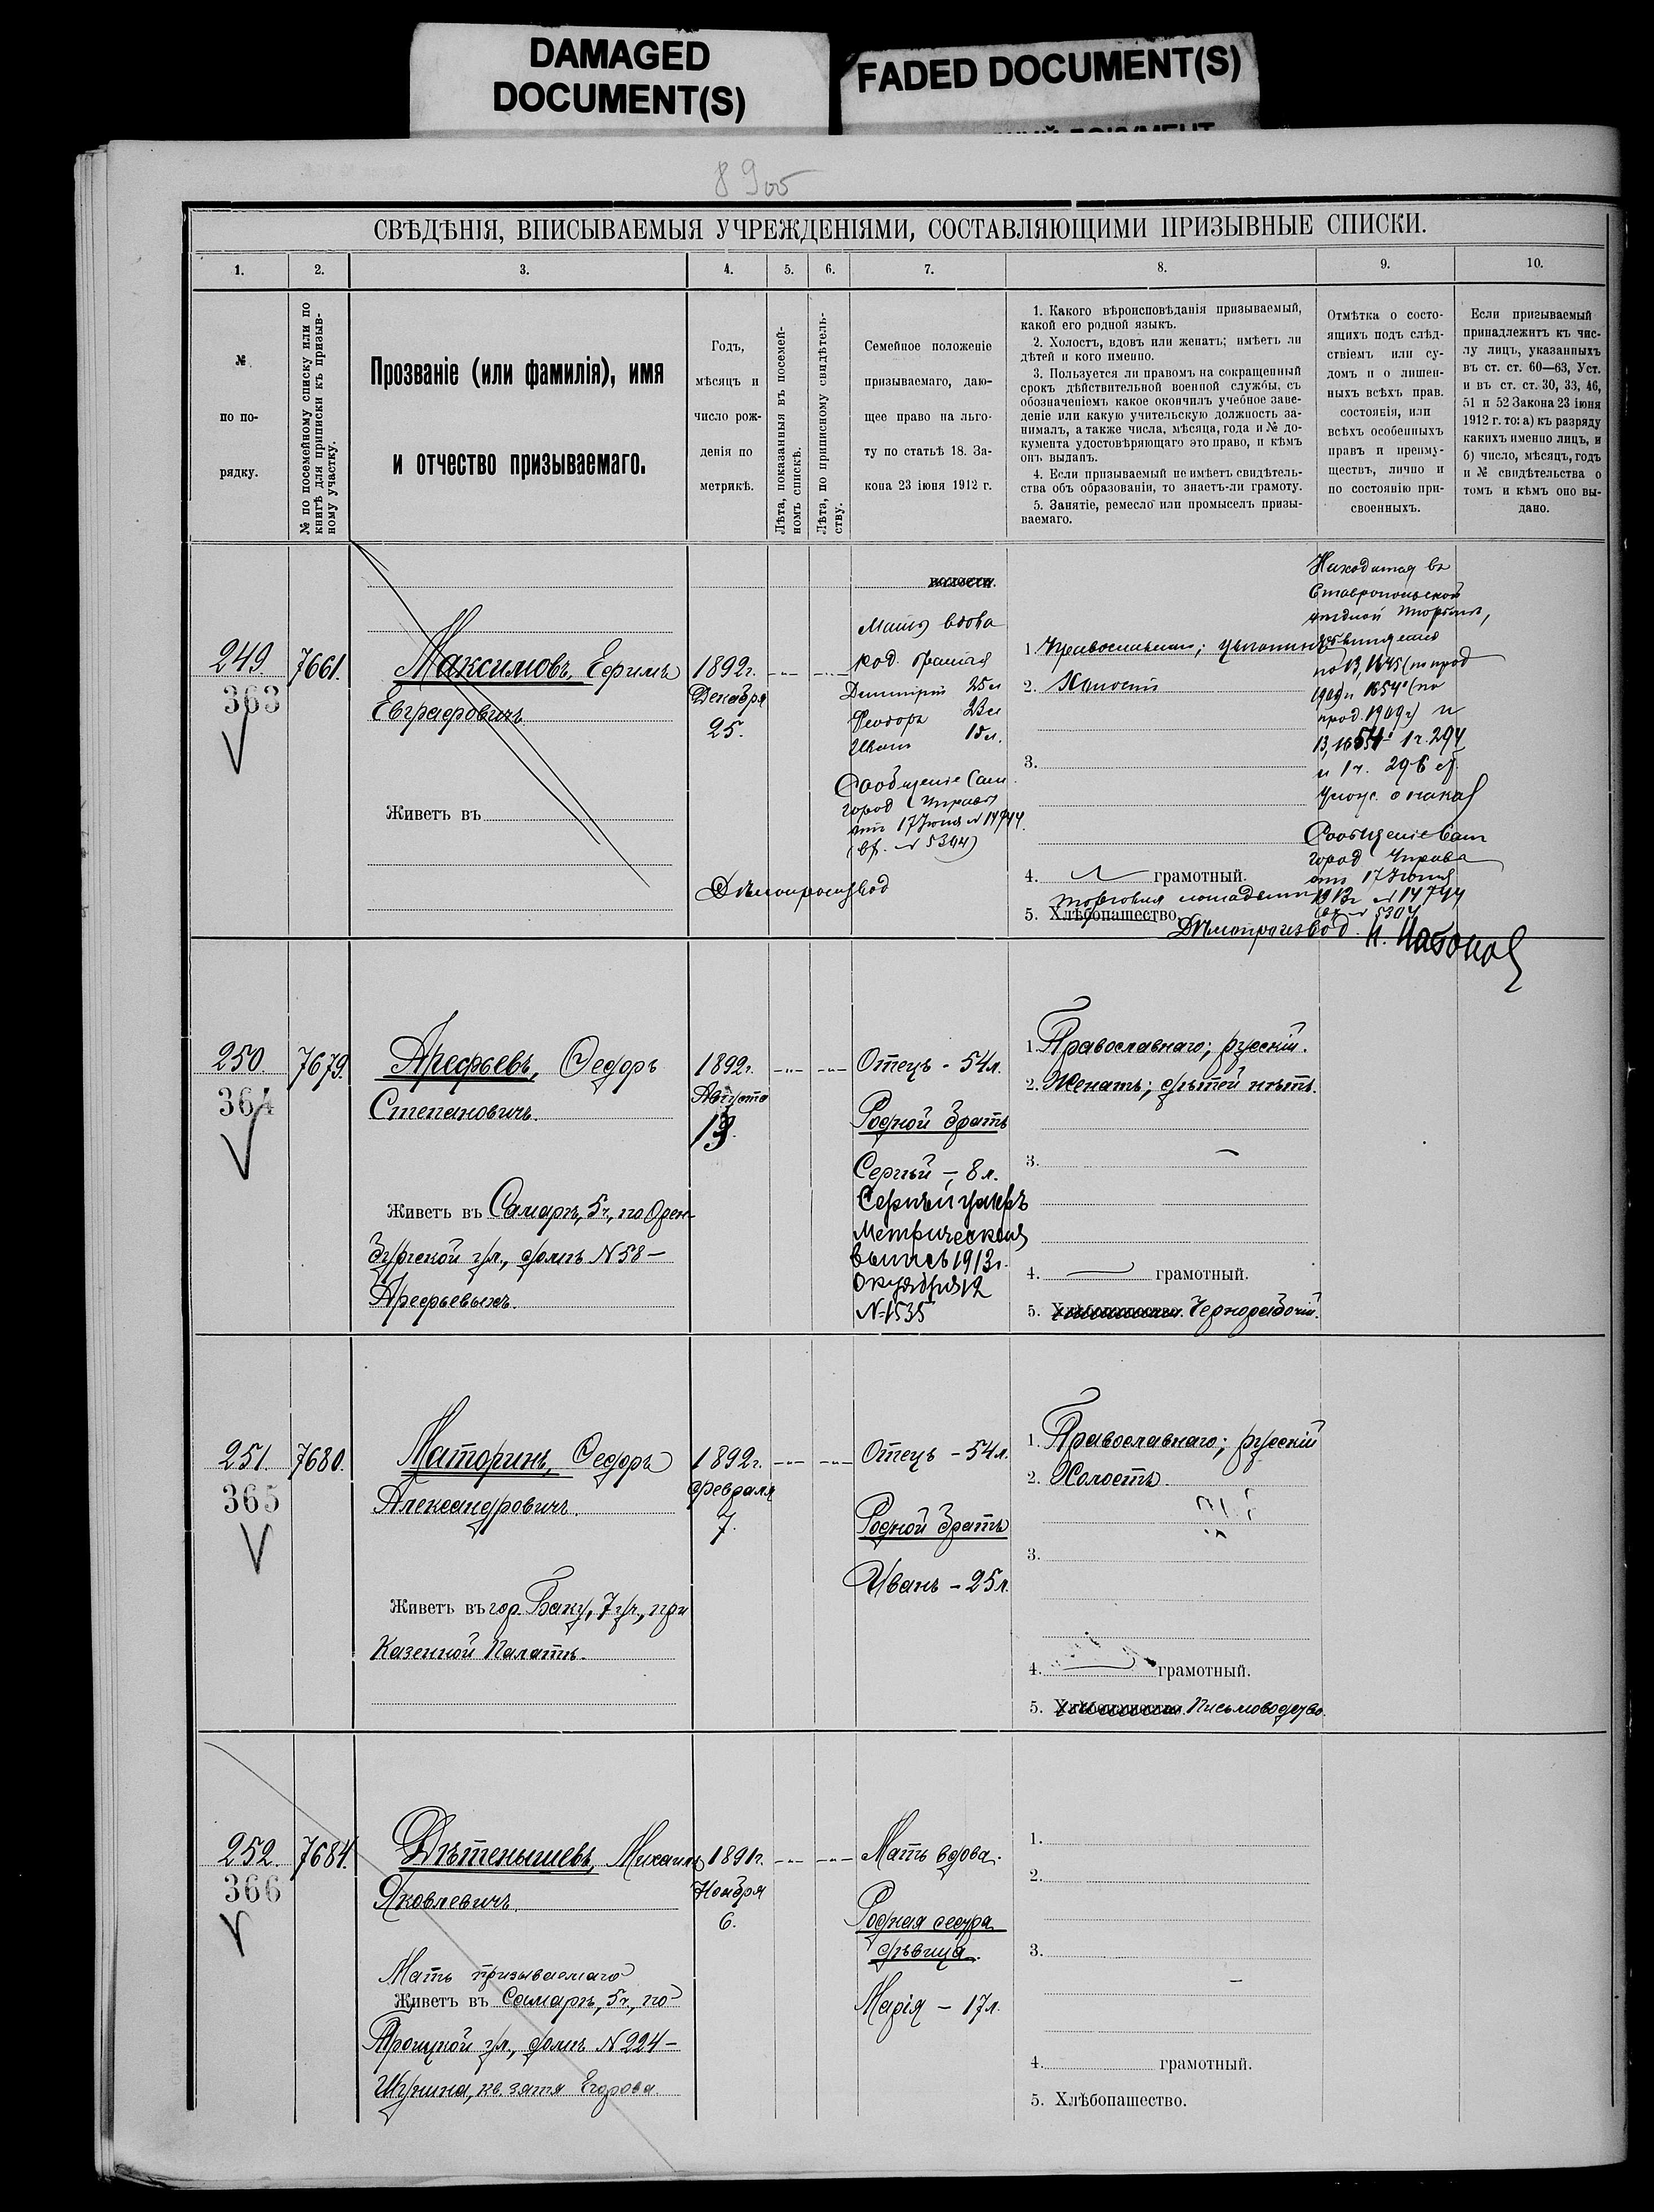 DAMAGED
DOCUMENT(S)
FADED DOCUMENT(S)
СВѢДѢНІЯ, ВПИСЫВАЕМЫЯ УЧРЕЖДЕНІЯМИ, СОСТАВЛЯЮЩИМИ ПРИЗЫВНЫЕ СПИСКИ.
1. 2. 3. 4. 5. 6. 7. 8. 9. 10.
№
по по-
рядку.
№ по посемейному списку или по
книгѣ для приписки къ призыв-
ному участку.
Прозваніе (или фамилія), имя
и отчество призываемаго.
Годъ,
мѣсяцъ и
число рож-
денія по
метрикѣ.
Лѣта, показанныя въ посемей-
номъ спискѣ.
Лѣта, по приписному свидѣтель-
ству.
Семейное положеніе
призываемаго, даю-
щее право на льго-
ту по статьѣ 18. За-
кона 23 іюня 1912 г.
1. Какого вѣроисповѣданія призываемый,
какой его родной языкъ.
2. Холостъ, вдовъ или женатъ; имѣетъ ли
дѣтей и кого именно.
3. Пользуется ли правомъ на сокращенный
срокъ дѣйствительной военной службы, съ
обозначеніемъ какое окончилъ учебное заве-
деніе или какую учительскую должность за-
нималъ, а также числа, мѣсяца, года и № до-
кумента удостовѣряющаго это право, и кѣмъ
онъ выданъ.
4. Если призываемый не имѣетъ свидѣтель-
ства объ образованіи, то знаетъ-ли грамоту.
5. Занятіе, ремесло или промыселъ призы-
ваемаго.
Отмѣтка о состо-
ящихъ подъ слѣд-
ствіемъ или су-
домъ и о лишен-
ныхъ всѣхъ прав.
состоянія, или
всѣхъ особенныхъ
правъ и преиму-
ществъ, лично и
по состоянію при-
своенныхъ.
Если призываемый
принадлежитъ къ чис-
лу лицъ, указанныхъ
въ ст. ст. 60—63, Уст.
и въ ст. ст. 30, 33, 46,
51 и 52 Закона 23 іюня
1912 г. то: а) къ разряду
какихъ именно лицъ, и
б) число, мѣсяцъ, годъ
и № свидѣтельства о
томъ и кѣмъ оно вы-
дано.
249. 7661.
363
Максимовъ, Ефимъ
Евграфовичъ.
Живетъ въ
1892 г.
Декабря
25.
Мать вдова
род. братья
Димитрій 25 л
Феодоръ 23 л
Иванъ 15 л.
Сообщеніе Сам.
город Управы
отъ 17 Іюня № 14744.
Дѣлопроизвод
1.
2. Холостъ
3.
4. грамотный.
торговля лошадьми
5. Хлѣбопашество.
Дѣлопроизвод.
Находится въ
Ставропольской
уѣздной тюрьмѣ,
Сообщеніе Сам
город Управы
отъ 17 Іюня
1913 г № 14744
250. 7679.
364
Арефьевъ, Федоръ
Степановичъ.
Живетъ въ Самарѣ, 5 ч., по Орен-
бургской ул., домъ № 58 —
Арефьевыхъ.
1892 г.
Августа
13.
Отецъ - 54 л.
Родной братъ
Сергѣй - 8 л.
Сергѣй умеръ
Метрическая
выпись 1913 г.
Октября 12
№ 1535
1. Православнаго; русскій.
2. Женатъ; дѣтей нѣтъ.
3. —
4. грамотный.
5. Хлѣбопашество. Чернорабочій.
251. 7680.
365
Маторинъ, Федоръ
Александровичъ.
Живетъ въ гор. Баку, 7 уч., при
Казенной Палатѣ.
1892 г.
Февраля
7.
Отецъ - 54 л.
Родной братъ
Иванъ - 25 л.
1. Православнаго; русскій
2. Холостъ.
3.
4. грамотный.
5. Хлѣбопашество. Письмоводство.
252. 7684.
366
Дѣтенышевъ, Михаилъ
Яковлевичъ.
Мать призываемаго
Живетъ въ Самарѣ, 5 ч., по
Троицкой ул., домъ № 224 —
Шукина, кв. зятя Егорова.
1891 г.
Ноября
6.
Мать вдова.
Родная сестра
дѣвица.
Марія - 17 л.
1.
2.
3. —
4. грамотный.
5. Хлѣбопашество.